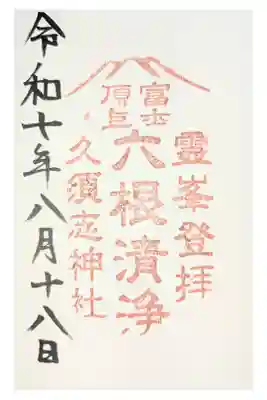 靈峯登拝
富士
頂上
六根清浄
久須志神社
令和十年八月十八日